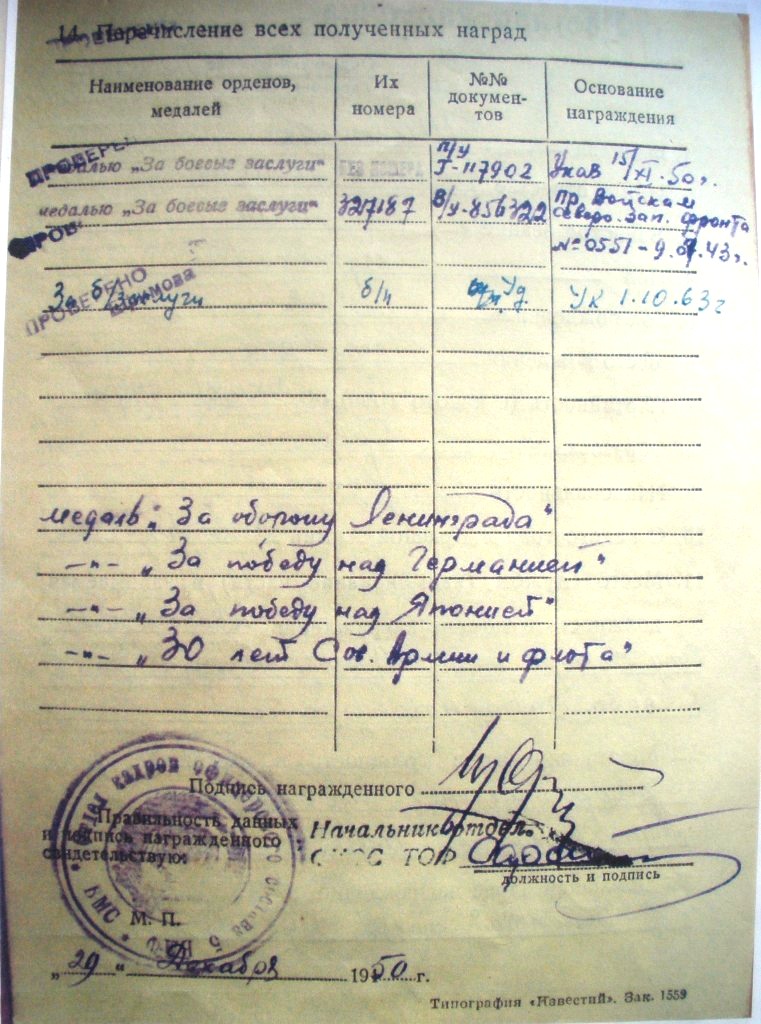 14. Перечисление всех полученных наград
Наименование орденов, медалей
Их номера
№№ документов
Основание награждения
ПРОВЕРЕНО
медалью „За боевые заслуги"
БЕЗ НОМЕРА
п/у Г-117902
Указ 15/XI-50г.
медалью „За боевые заслуги"
327187
В/у-856322
Пр. Войскам
Северо. Зап. фронта
№0551-9.
43г.
ПРОВЕРЕНО
За б/заслуги
б/н
Уд.
Ук 1.10.63г
медаль: За оборону Ленинграда"
-„- „За победу над Германией"
-„- „За победу над Японией"
-„- „30 лет Сов. Армии и флота"
Подпись награжденного
Правильность данных
и подпись награжденного
свидетельствую:
Начальник отдел.
ТОФ
должность и подпись
Отдел кадров офицерского состава 5 ВМФ * ВМС *
М. П.
„29" Декабря 1950 г.
Типография «Известий». Зак. 1559